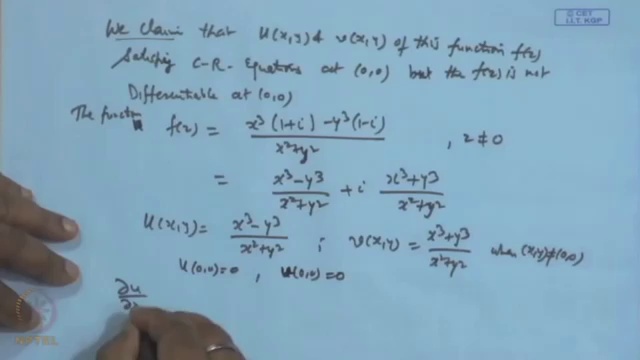 © CET
I.I.T. KGP
We claim that u(x,y) & v(x,y) of this function f(z)
Satisfying C-R- Equations at (0,0) but the f(z) is not
Differentiable at (0,0)
The function f(z) = x³(1+i) - y³(1-i) / x²+y² , z ≠ 0
= x³-y³ / x²+y² + i x³+y³ / x²+y²
u(x,y) = x³-y³ / x²+y² ; v(x,y) = x³+y³ / x²+y² when (x,y)≠(0,0)
u(0,0)=0 , v(0,0)=0
∂u
NPTEL